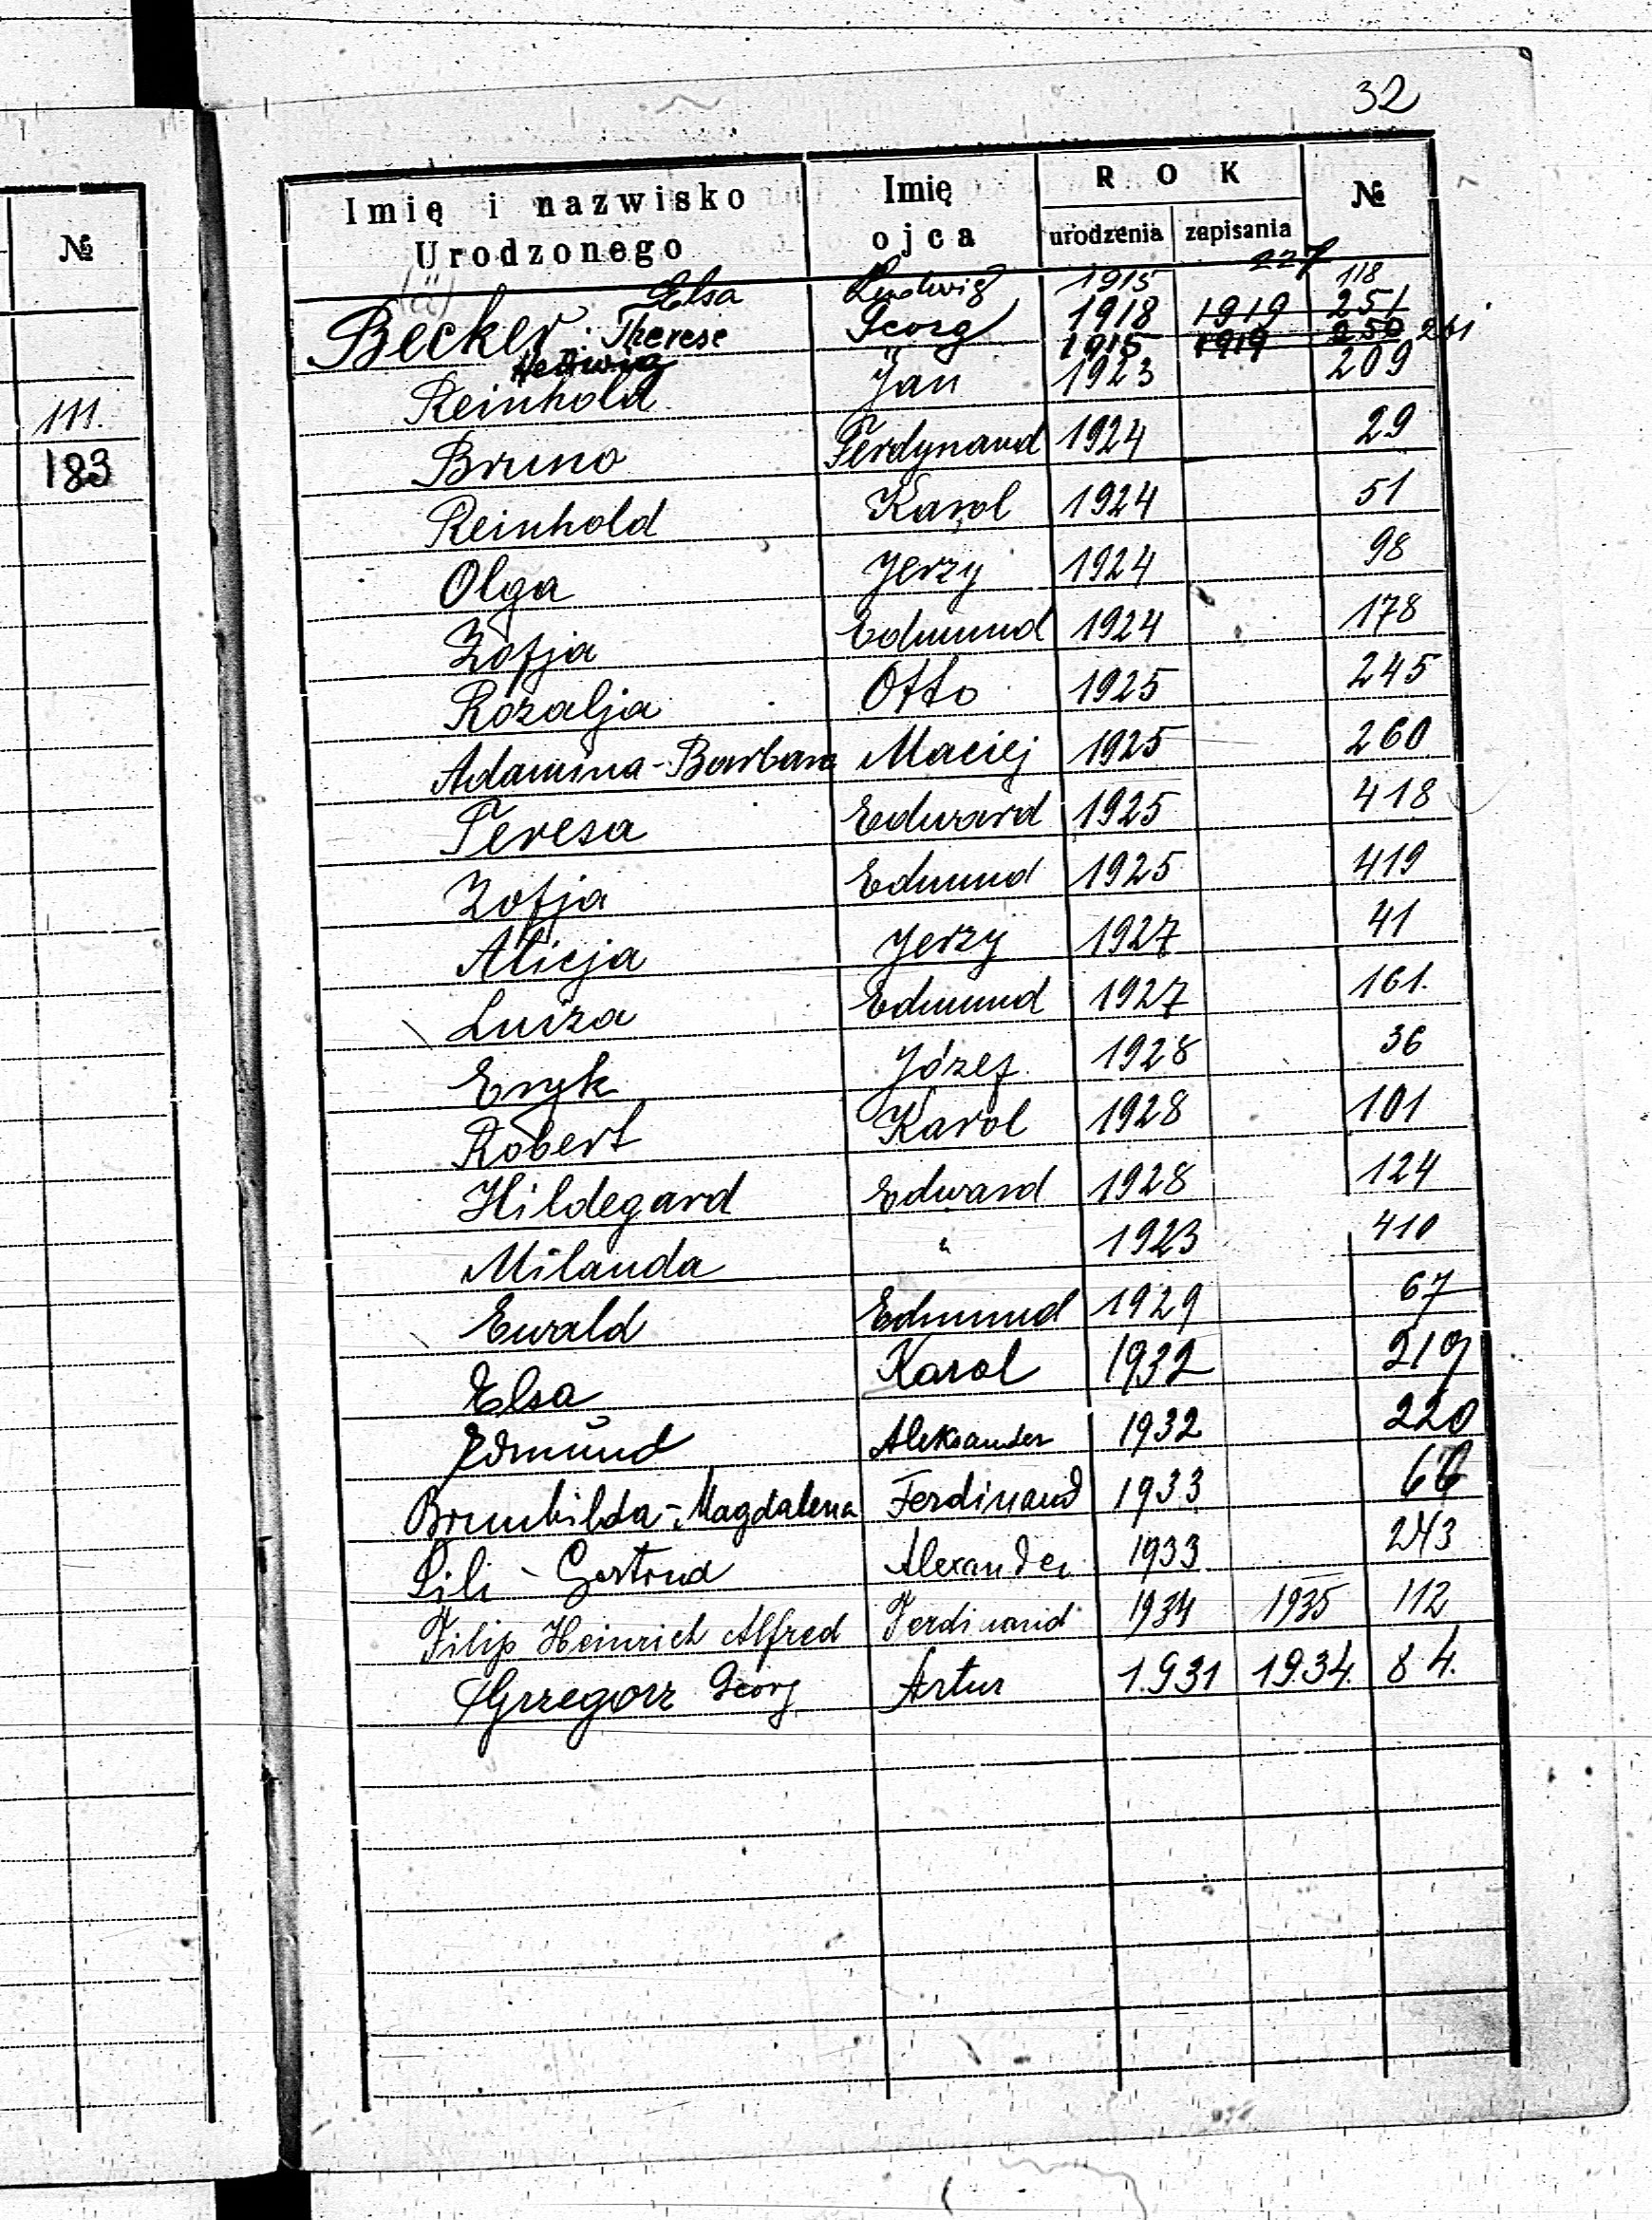 32
№
Imię i nazwisko Urodzonego
Imię ojca
ROK
urodzenia
zapisania
№
111.
183
(ä)
Elsa Ludwig 1915 227 118
Becker Therese Georg 1918 1919 251
Hedwig " 1915 1919 250 261
Reinhold Jan 1923 209
Bruno Ferdynand 1924 29
Reinhold Karol 1924 51
Olga Jerzy 1924 98
Zofja Edmund 1924 178
Rozalja Otto 1925 245
Adamina-Barbara Maciej 1925 260
Teresa Edward 1925 418
Zofja Edmund 1925 419
Alicja Jerzy 1927 41
Luiza Edmund 1927 161.
Eryk Józef 1928 36
Robert Karol 1928 101
Hildegard Edward 1928 124
Milanda " 1923 410
Ewald Edmund 1929 67
Elsa Karol 1932 219
Edmund Aleksander 1932 220
Brunhilda-Magdalena Ferdinand 1933
Lili-Gertrud Alexander 1933 243
Filip Heinrich Alfred Ferdinand 1934 1935 112
Grzegorz Georg Artur 1931 1934. 84.